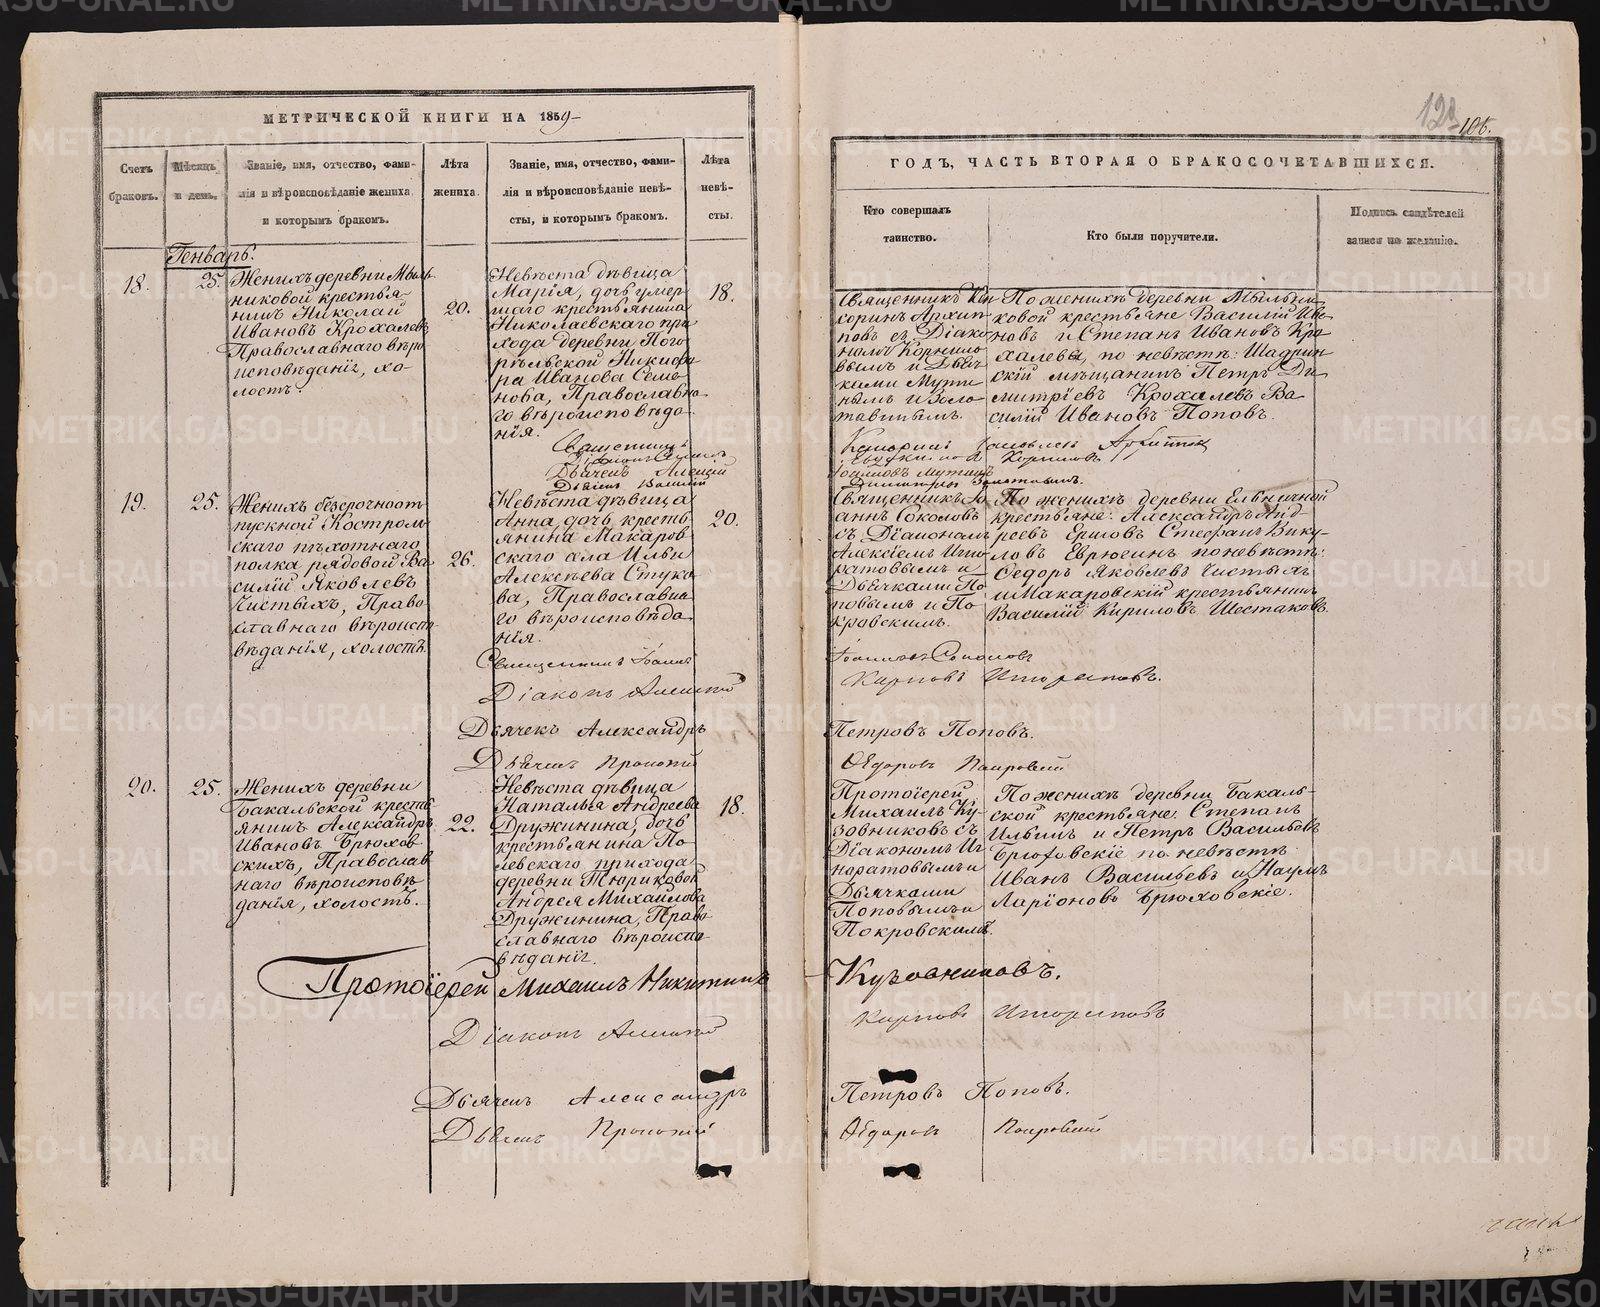 МЕТРИЧЕСКОЙ КНИГИ НА 1859
Счетъ браковъ.
Мѣсяцъ и день.
Званіе, имя, отчество, фами-
лія и вѣроисповѣданіе жениха
и которымъ бракомъ.
Лѣта
жениха.
Званіе, имя, отчество, фами-
лія и вѣроисповѣданіе невѣ-
сты, и которымъ бракомъ.
Лѣта
невѣ-
сты.
Генварь.
18.
25.
Женихъ деревни Мыль-
никовой крестья-
нинъ Николай
Ивановъ Крохалевъ
Православнаго вѣро
исповѣданія, хо-
лостъ.
20.
Невѣста дѣвица
Марія, дочь умер
шаго крестьянина
Николаевскаго при
хода деревни Пого
рѣльской Никифо
ра Иванова Семе
нова, Православна
го вѣроисповѣда
нія.
18.
Священникъ
Дьячекъ Алексѣй
Дьячекъ Василій
19.
25.
Женихъ безсрочноот
пускной Костром
скаго пѣхотнаго
полка рядовой Ва
силій Яковлевъ
Чистыхъ, Право
славнаго вѣроиспо
вѣданія, холостъ.
26.
Невѣста дѣвица
Анна, дочь кресть
янина Макаров
скаго села Ильи
Алексѣева Стуко
ва, Православна
го вѣроисповѣда
нія.
20.
Священникъ Іоаннъ
Діаконъ Алексѣй
Дьячекъ Александръ
Дьячекъ Прокопій
20.
25.
Женихъ деревни
Бакальской кресть
янинъ Александръ
Ивановъ Брюхов
скихъ, Православ
наго вѣроисповѣ
данія, холостъ.
22.
Невѣста дѣвица
Наталья Андреева
Дружинина, дочь
крестьянина По
левскаго прихода
деревни Тюриковой
Андрея Михайлова
Дружинина, Право
славнаго вѣроиспо
вѣданія.
18.
Протоіерей Михаилъ Никитинъ
Діаконъ Алексѣй
Дьячекъ Александръ
Дьячекъ Прокопій
106.
ГОДЪ, ЧАСТЬ ВТОРАЯ О БРАКОСОЧЕТАВШИХСЯ.
Кто совершалъ
таинство.
Кто были поручители.
Подпись свидѣтелей
записи по желанію.
Священникъ Ки
поринъ Архип
повъ съ Діако
номъ Корнило
вымъ и Дьяч
ками Мути
нымъ и Золо
тавинымъ.
По женихѣ деревни Мыльни
ковой крестьяне Василій Ива
новъ и Степанъ Ивановъ Кро
халевы, по невѣстѣ: Шадрин
скій мѣщанинъ Петръ Ди
митріевъ Крохалевъ Ва
силій Ивановъ Поповъ.
Корниловъ
Іоанновъ Мутинъ
Священникъ Іо
аннъ Соколовъ
съ Діакономъ
Алексіемъ Игно
ратовымъ и
Дьячками По
повымъ и По
кровскимъ.
По женихѣ деревни Ельничной
крестьяне: Александръ Анд-
реевъ Ершовъ Стефанъ Вику
ловъ Еврюгинъ по невѣстѣ:
Федоръ Яковлевъ Чистыхъ
и Макаровскій крестьянинъ
Василій Кириловъ Шестаковъ.
Іоанновъ Соколовъ
Карповъ
Петровъ Поповъ.
Ѳедоровъ Покровскій
Протоіерей
Михаилъ Ку
зовниковъ съ
Діакономъ Иг
норатовымъ и
Дьячками
Поповымъ и
Покровскимъ.
По женихѣ деревни Бакаль-
ской крестьяне: Степанъ
Ильинъ и Петръ Васильевъ
Брюховскіе по невѣстѣ
Иванъ Васильевъ и Наумъ
Ларіоновъ Брюховскіе.
Кузовниковъ.
Карповъ
Петровъ Поповъ.
Ѳедоровъ Покровскій
METRIKI.GASO-URAL.RU